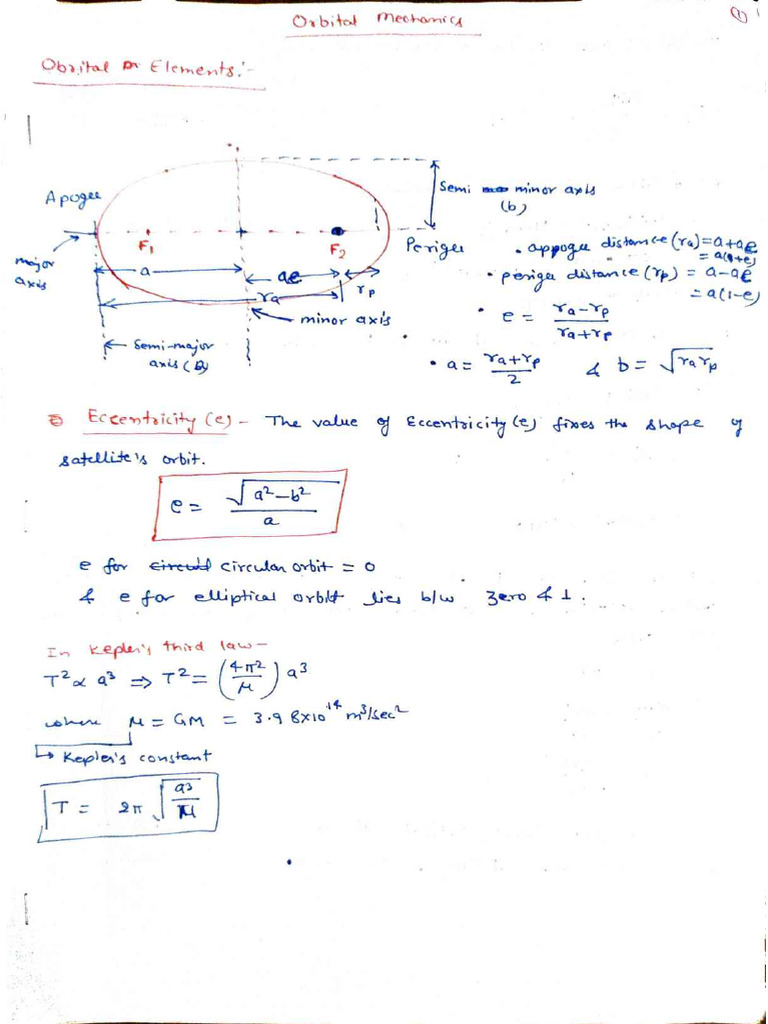 ①
Orbital Mechanics
Obrital Elements:-
Apogee
Semi minor axis
(b)
F₁
F₂
Perigee
major
axis
a
ae
ra
rp
minor axis
Semi-major
axis
• appogee distance (ra) = a+ae
= a(1+e)
• perigee distance (rp) = a-ae
= a(1-e)
• e = ra-rp / ra+rp
• a = ra+rp / 2 & b = √ra rp
Eccentricity (e) - The value of Eccentricity (e) fixes the shape of
satellite's orbit.
e = √a²-b² / a
e for circular orbit = 0
& e for elliptical orbit lies b/w zero & 1.
In Kepler's third law -
T² α a³ ⇒ T² = (4π²/μ) a³
where μ = GM = 3.98×10¹⁴ m³/sec²
↳ Kepler's constant
T = 2π √a³/μ